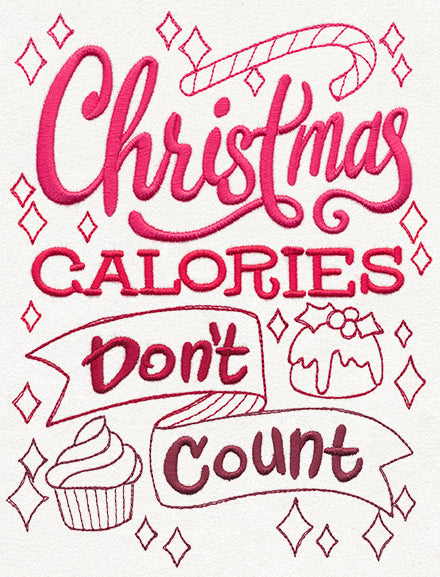 Christmas
CALORIES
Don't
Count